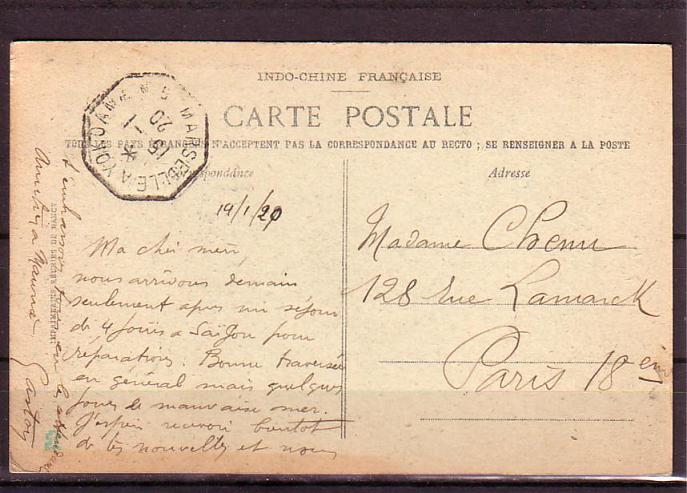 INDO-CHINE FRANÇAISE
CARTE POSTALE
TOUS LES PAYS ÉTRANGERS N'ACCEPTENT PAS LA CORRESPONDANCE AU RECTO ; SE RENSEIGNER A LA POSTE
MARSEILLE A YOKOHAMA N 5
15 -1
20
*
Correspondance
Adresse
19/1/20
Ma chère mère,
nous arrivons demain
seulement après un séjour
de 4 jours a Saïgon pour
réparations. Bonne traversée
en général mais quelques
jours de mauvaise mer.
J'espère recevoir bientôt
de tes nouvelles et nous
t'embrassons en
Amitiés a
Gaston
Madame Chenu
128 rue Lamarck
Paris 18 em